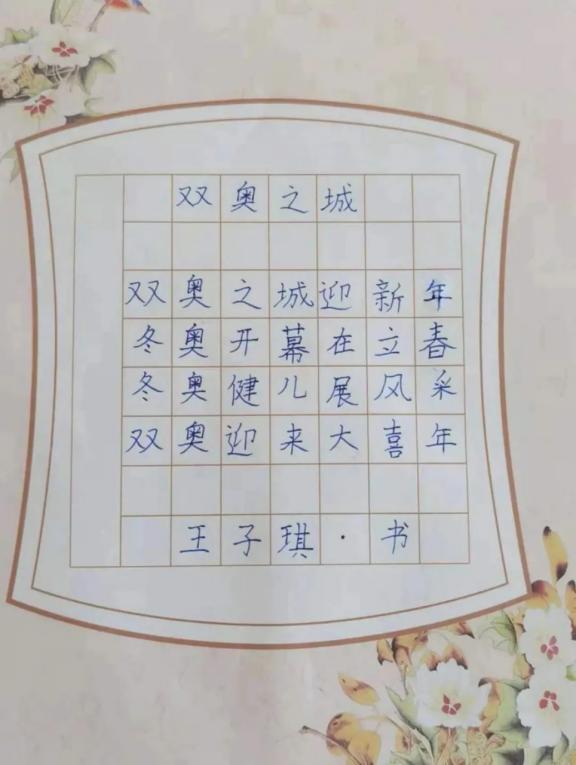 双奥之城
双奥之城迎新年
冬奥开幕在立春
冬奥健儿展风采
双奥迎来大喜年
王子琪·书